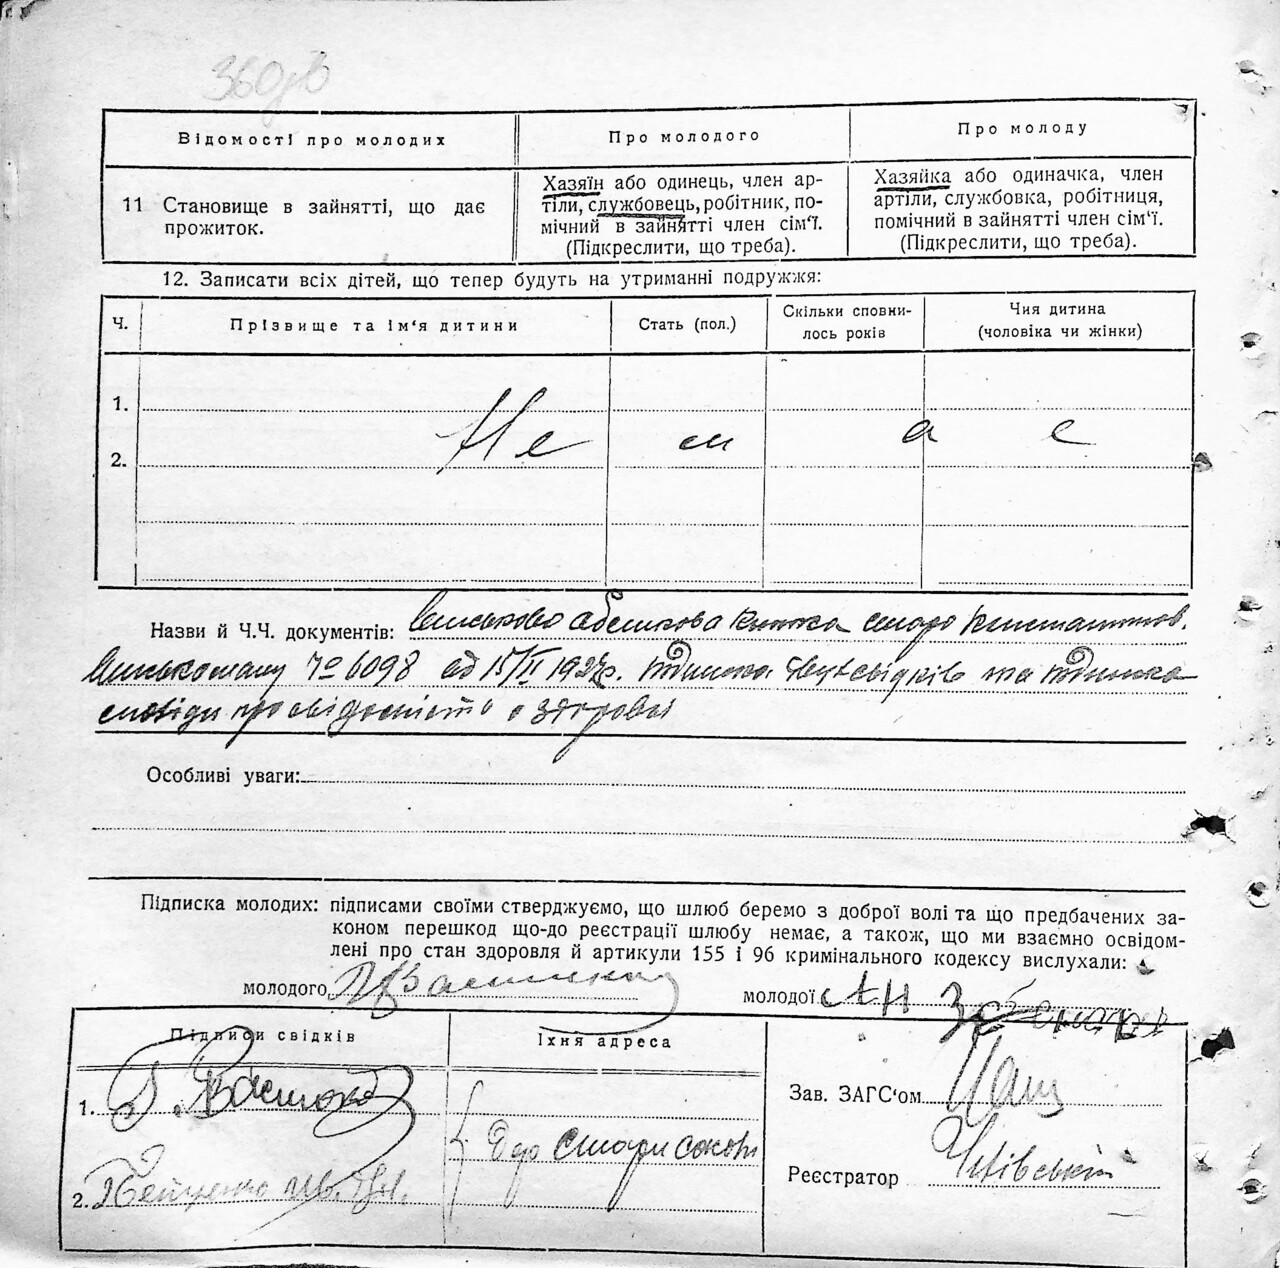 360зв
Відомості про молодих
Про молодого
Про молоду
11 Становище в зайнятті, що дає
прожиток.
Хазяїн або одинець, член ар-
тіли, службовець, робітник, по-
мічний в зайнятті член сім'ї.
(Підкреслити, що треба).
Хазяйка або одиначка, член
артіли, службовка, робітниця,
помічний в зайнятті член сім'ї.
(Підкреслити, що треба).
12. Записати всіх дітей, що тепер будуть на утриманні подружжя:
Ч.
Прізвище та ім'я дитини
Стать (пол.)
Скільки сповни-
лось років
Чия дитина
(чоловіка чи жінки)
1.
Не м а є
2.
Назви й Ч.Ч. документів: Військово обликова книжка старо Констант.
Військомату № 6098 од 15/II 1927р. Підписка двух свідків та підписка
про свідомість о здоровы
Особливі уваги:
Підписка молодих: підписами своїми стверджуємо, що шлюб беремо з доброї волі та що предбачених за-
коном перешкод що-до реєстрації шлюбу немає, а також, що ми взаємно освідом-
лені про стан здоровля й артикули 155 і 96 кримінального кодексу вислухали:
молодого
молодої
Підписи свідків
Їхня адреса
1.
2. Петренко Ив.
стари
Зав. ЗАГС'ом
Реєстратор